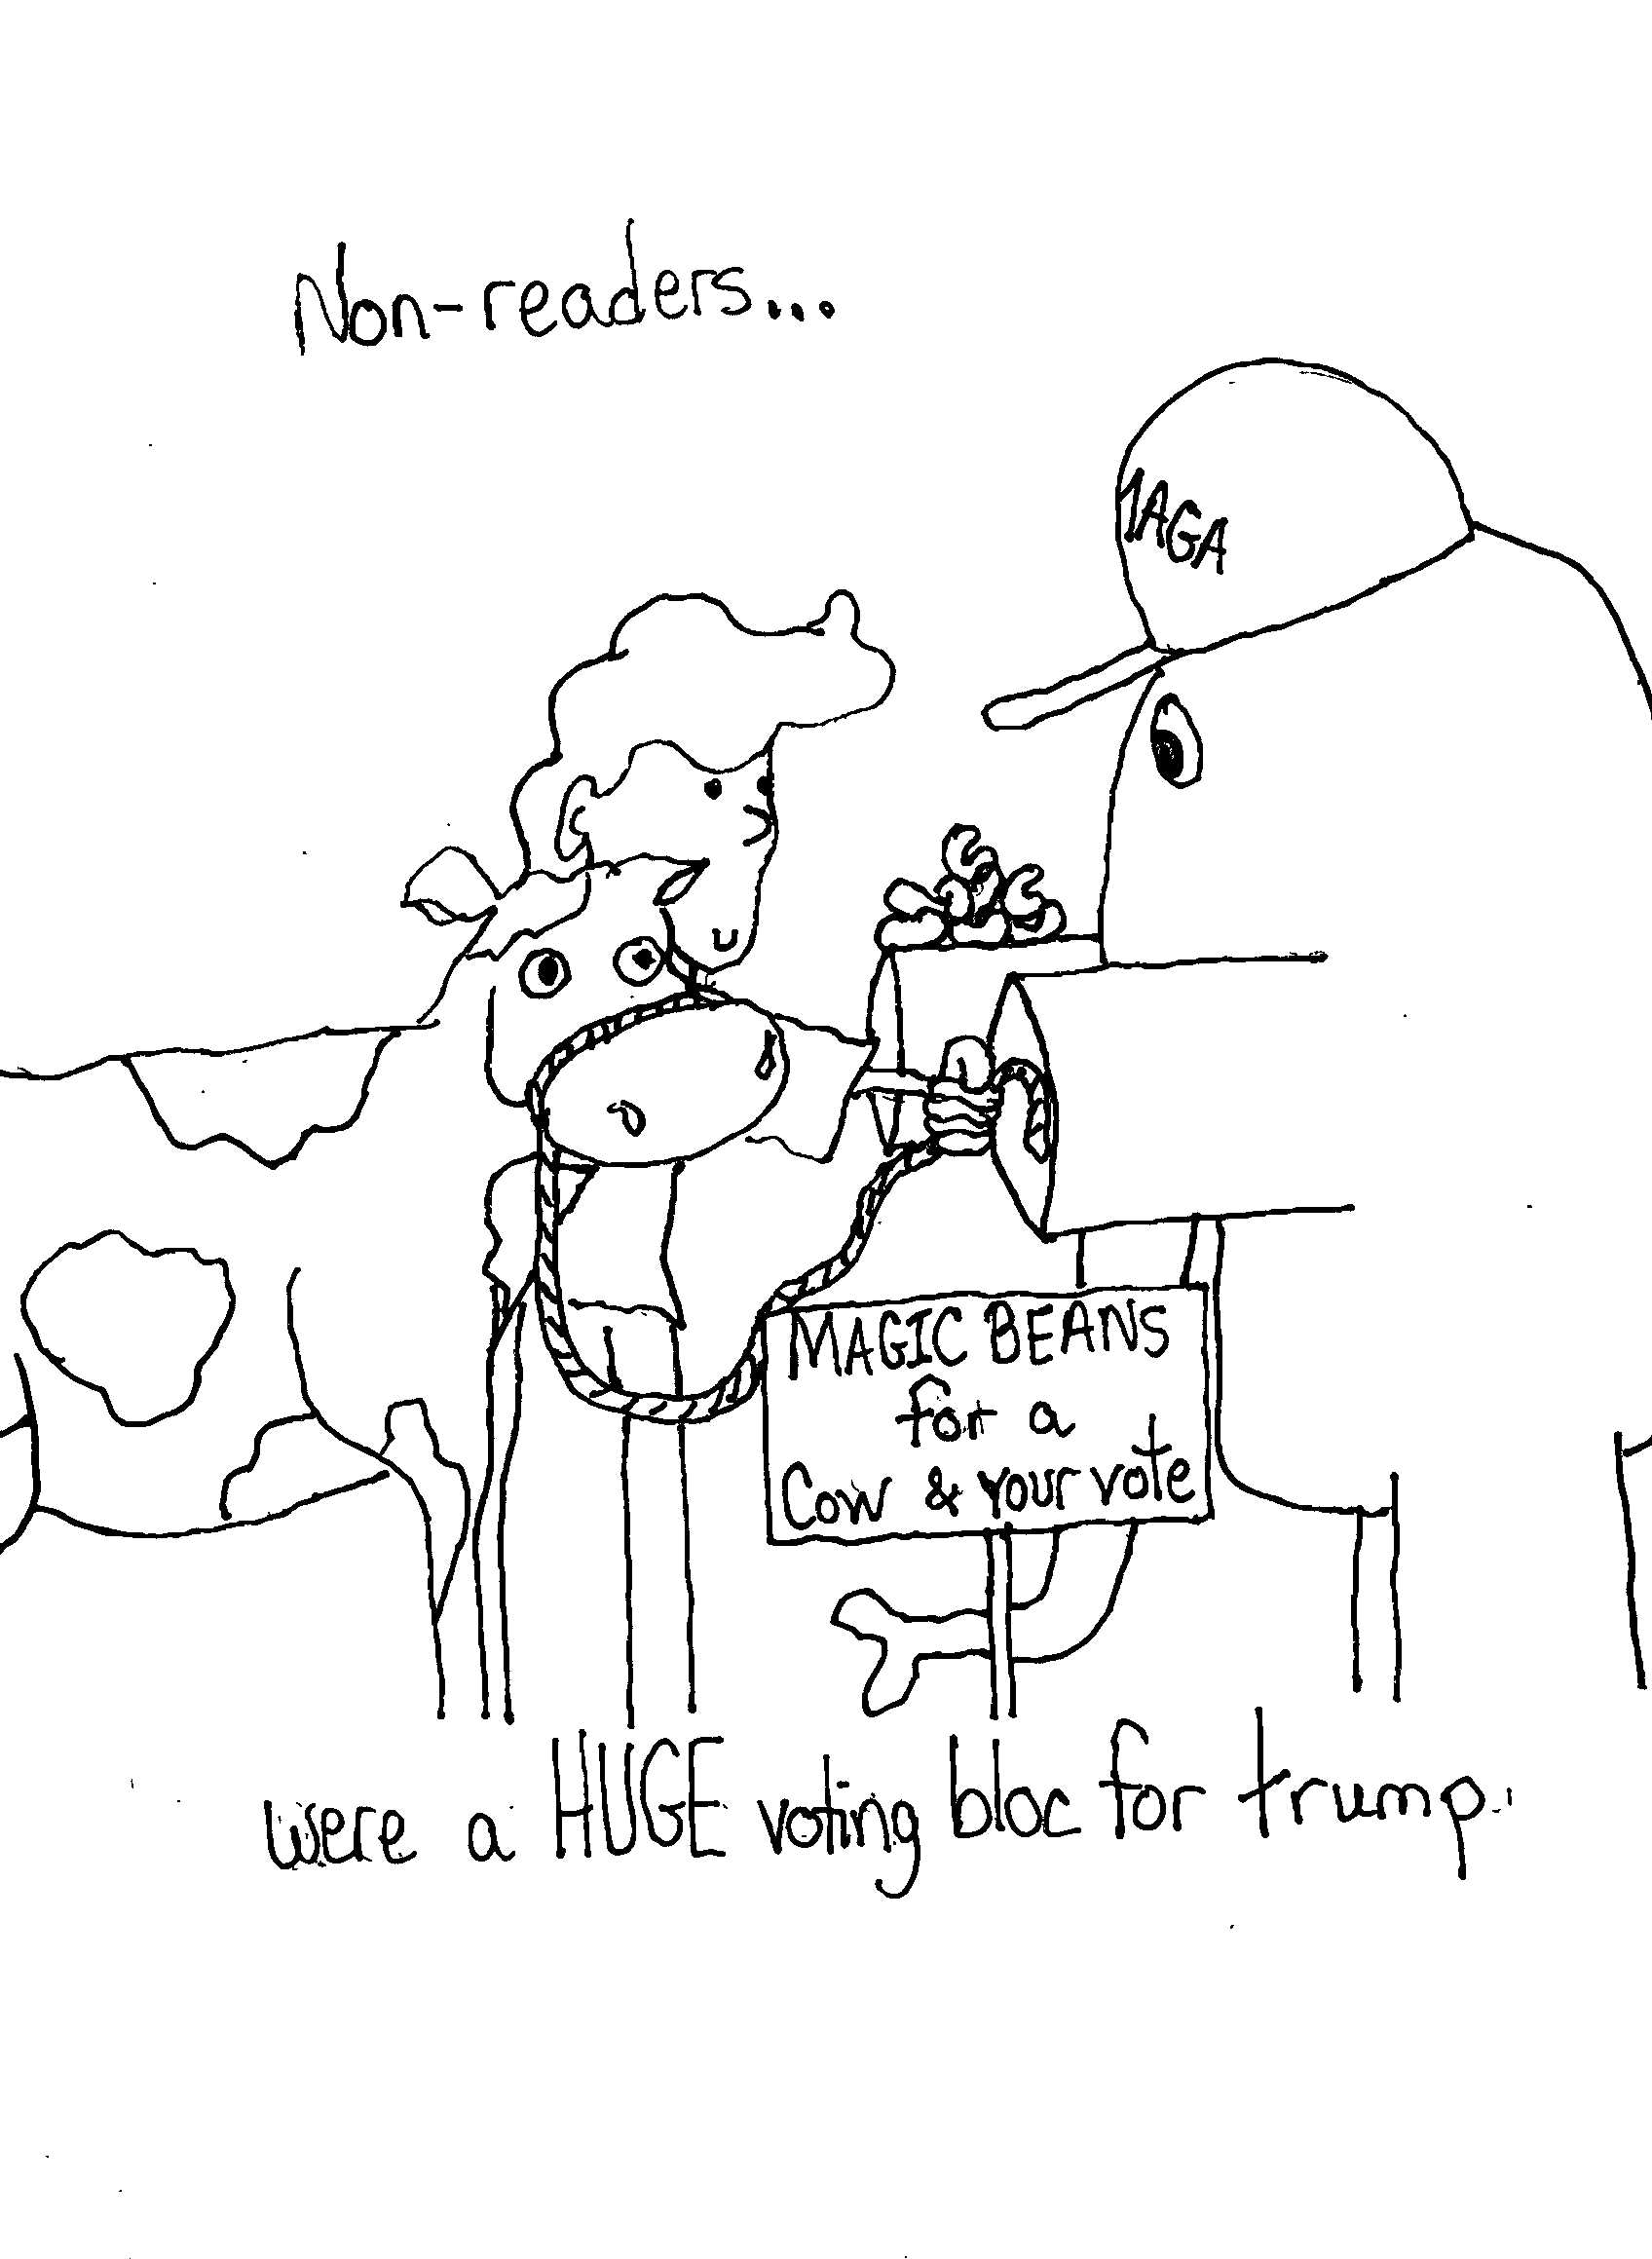 Non-readers...
MAGA
MAGIC BEANS
for a
Cow & your vote
were a HUGE voting bloc for trump.